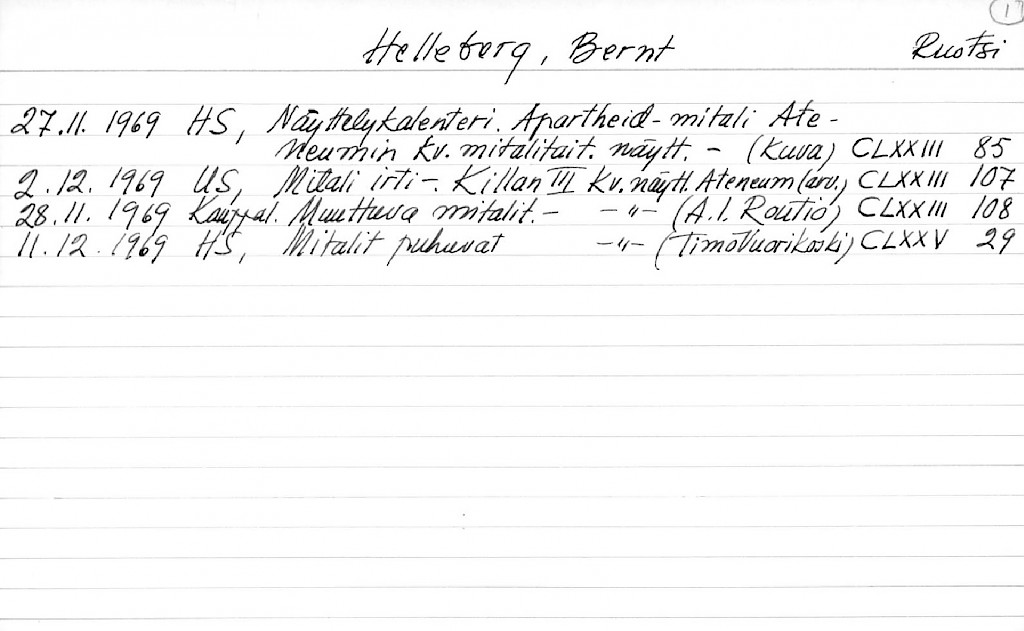 1
Helleberg, Bernt Ruotsi
27.11. 1969 HS, Näyttelykalenteri. Apartheid-mitali Ate-
neumin kv. mitalitait. näytt. - (Kuva) CLXXIII 85
2.12. 1969 US, Mitali irti -. Killan III kv. näytt. Ateneum (arv.) CLXXIII 107
28.11. 1969 Kauppal. Muuttuva mitalit. - -"- (A.I. Routio) CLXXIII 108
11.12. 1969 HS, Mitalit puhuvat -"- (Timo Vuorikoski) CLXXV 29